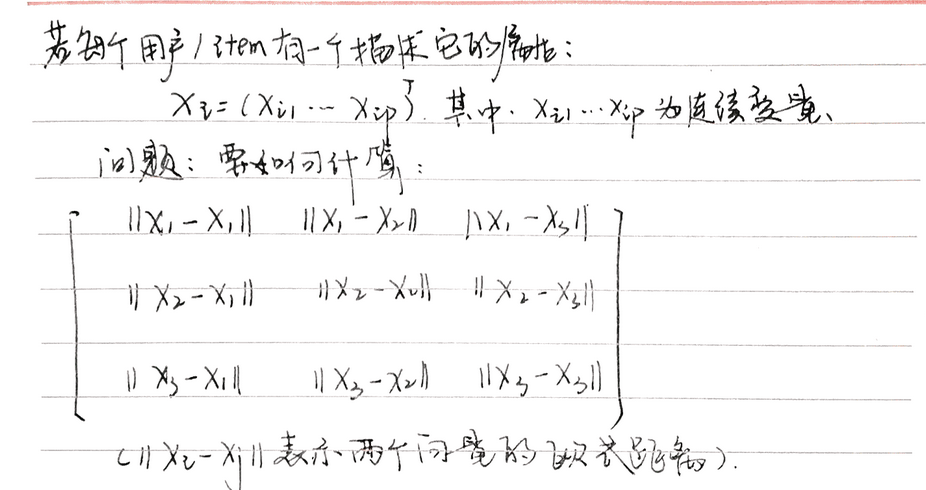 若每个用户/item有一个描述它的属性:
Xi=(Xi1 ... Xip)ᵀ. 其中. Xi1...Xip 为连续变量、
问题: 要如何计算:
||X1-X1|| ||X1-X2|| ||X1-X3||
||X2-X1|| ||X2-X2|| ||X2-X3||
||X3-X1|| ||X3-X2|| ||X3-X3||
(||Xi-Xj|| 表示两个向量的欧式距离).